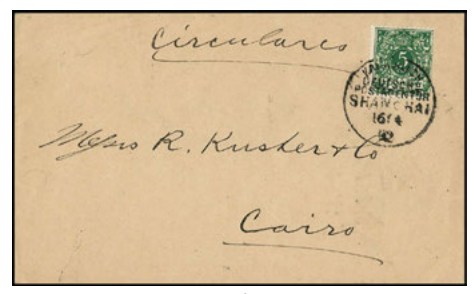 Circulares
5
KAISERL. DEUTSCHE
POSTAGENTUR
SHANGHAI
16/4
92
Messrs R. Kusher & Co
Cairo